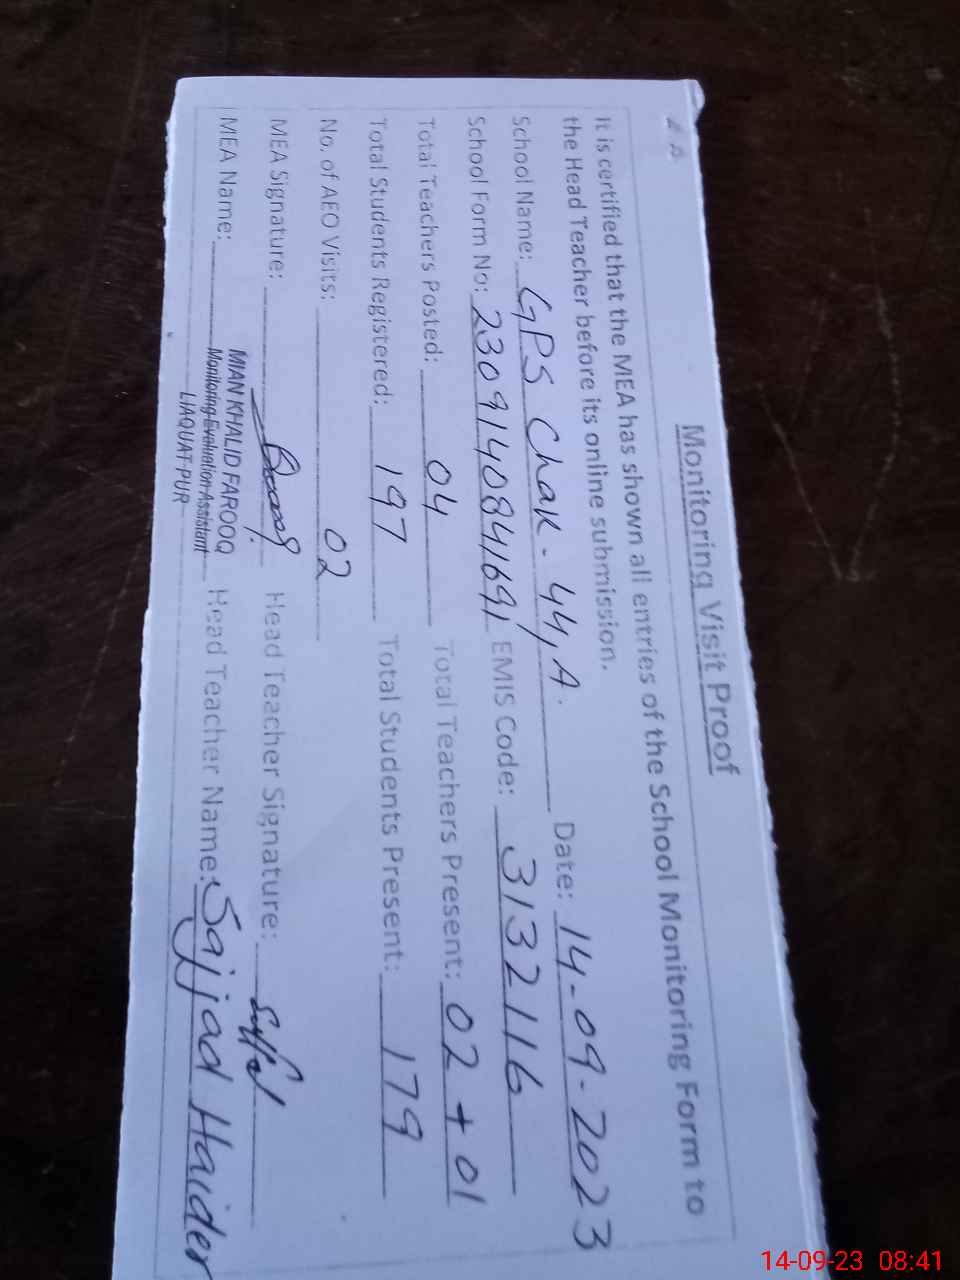 Monitoring Visit Proof
It is certified that the MEA has shown all entries of the School Monitoring Form to
the Head Teacher before its online submission.
School Name: GPS Chak - 44, A. Date: 14-09-2023
School Form No: 2309140841691 EMIS Code: 3132116
Total Teachers Posted: 04 Total Teachers Present: 02 + 01
Total Students Registered: 197 Total Students Present: 179
No. of AEO Visits: 02
MEA Signature: Head Teacher Signature:
MEA Name: MIAN KHALID FAROOQ Head Teacher Name: Sajjad Haider
Monitoring Evaluation Assistant
LIAQUAT-PUR
14-09-23 08:41